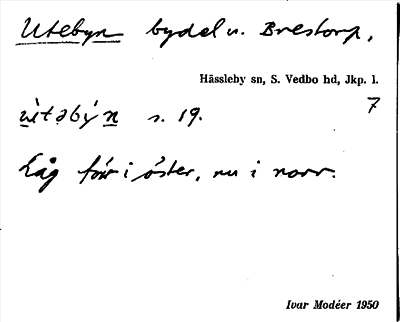 Utebyn bydel u. Brestorp.
Hässleby sn, S. Vedbo hd, Jkp. l.
7
ùtəbýn s. 19.
Låg förr i öster, nu i norr.
Ivar Modéer 1950